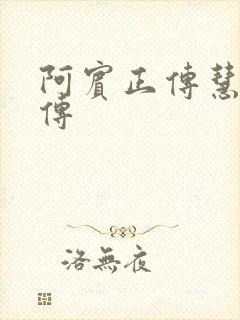 阿賓正傳慧
傳
洛無夜